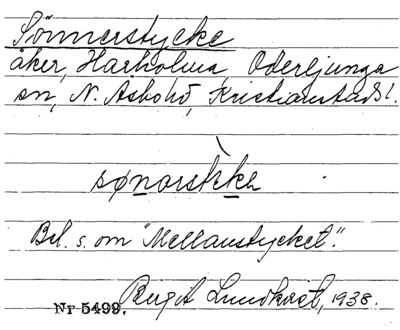 Sönnerstycke
åker, Harholma, Oderljunga
sn, N. Åsbo hd, Kristianstads l.
sønorstÌkke
Bel. s. om "Mellanstycket".
Nr 5499. Birgit Lundkvist, 1938.